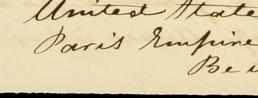 United State
Paris Empire
Be